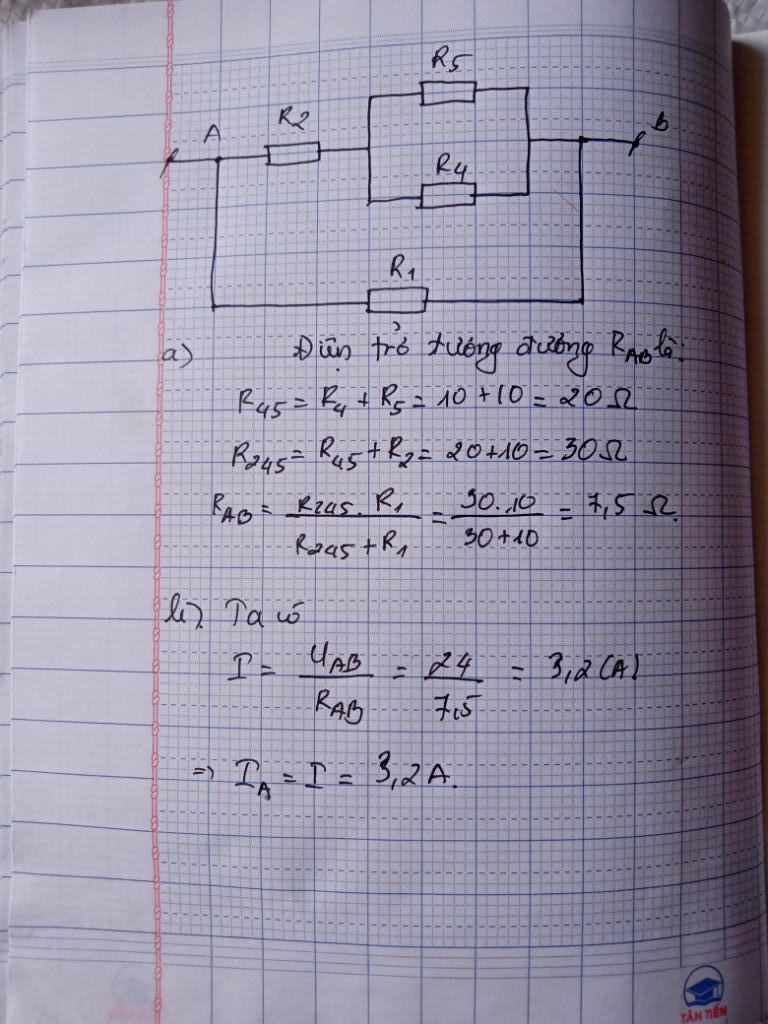 R5
R2
A
B
R4
R1
a) Điện trở tương đương R_AB là:
R_45 = R_4 + R_5 = 10 + 10 = 20 Ω
R_245 = R_45 + R_2 = 20 + 10 = 30 Ω
R_AB = (R_245 . R_1) / (R_245 + R_1) = (30 . 10) / (30 + 10) = 7,5 Ω.
b) Ta có
I = U_AB / R_AB = 24 / 7,5 = 3,2 (A)
=> I_A = I = 3,2 A.
TÂN TIẾN